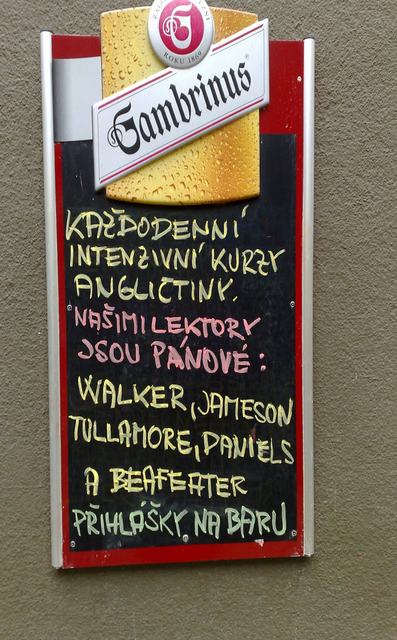 ROKU 1869
Gambrinus
KAŽDODENNÍ
INTENZIVNÍ KURZY
ANGLICTINY.
NAŠIMI LEKTORY
JSOU PÁNOVÉ:
WALKER, JAMESON
TULLAMORE, DANIELS
A BEAFEATER
PŘIHLÁŠKY NA BARU